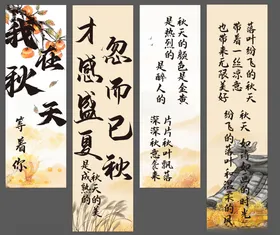 我在
秋天
等着你
才感盛夏
忽而已秋
秋天的美
是成熟的
秋天的颜色是金黄
是热烈的 是醉人的
片片秋叶飘落
深深秋意袭来
落叶纷飞的秋天
带着一丝凉意
也带来无限美好
秋天